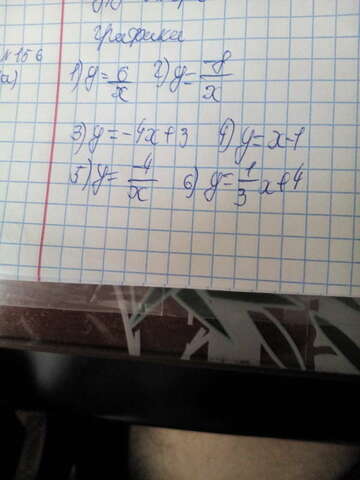 графика
№156
а)
1) y = 6/x 2) y = -8/x
3) y = -4x+3 4) y = x-1
5) y = -4/x 6) y = 1/3 x+4